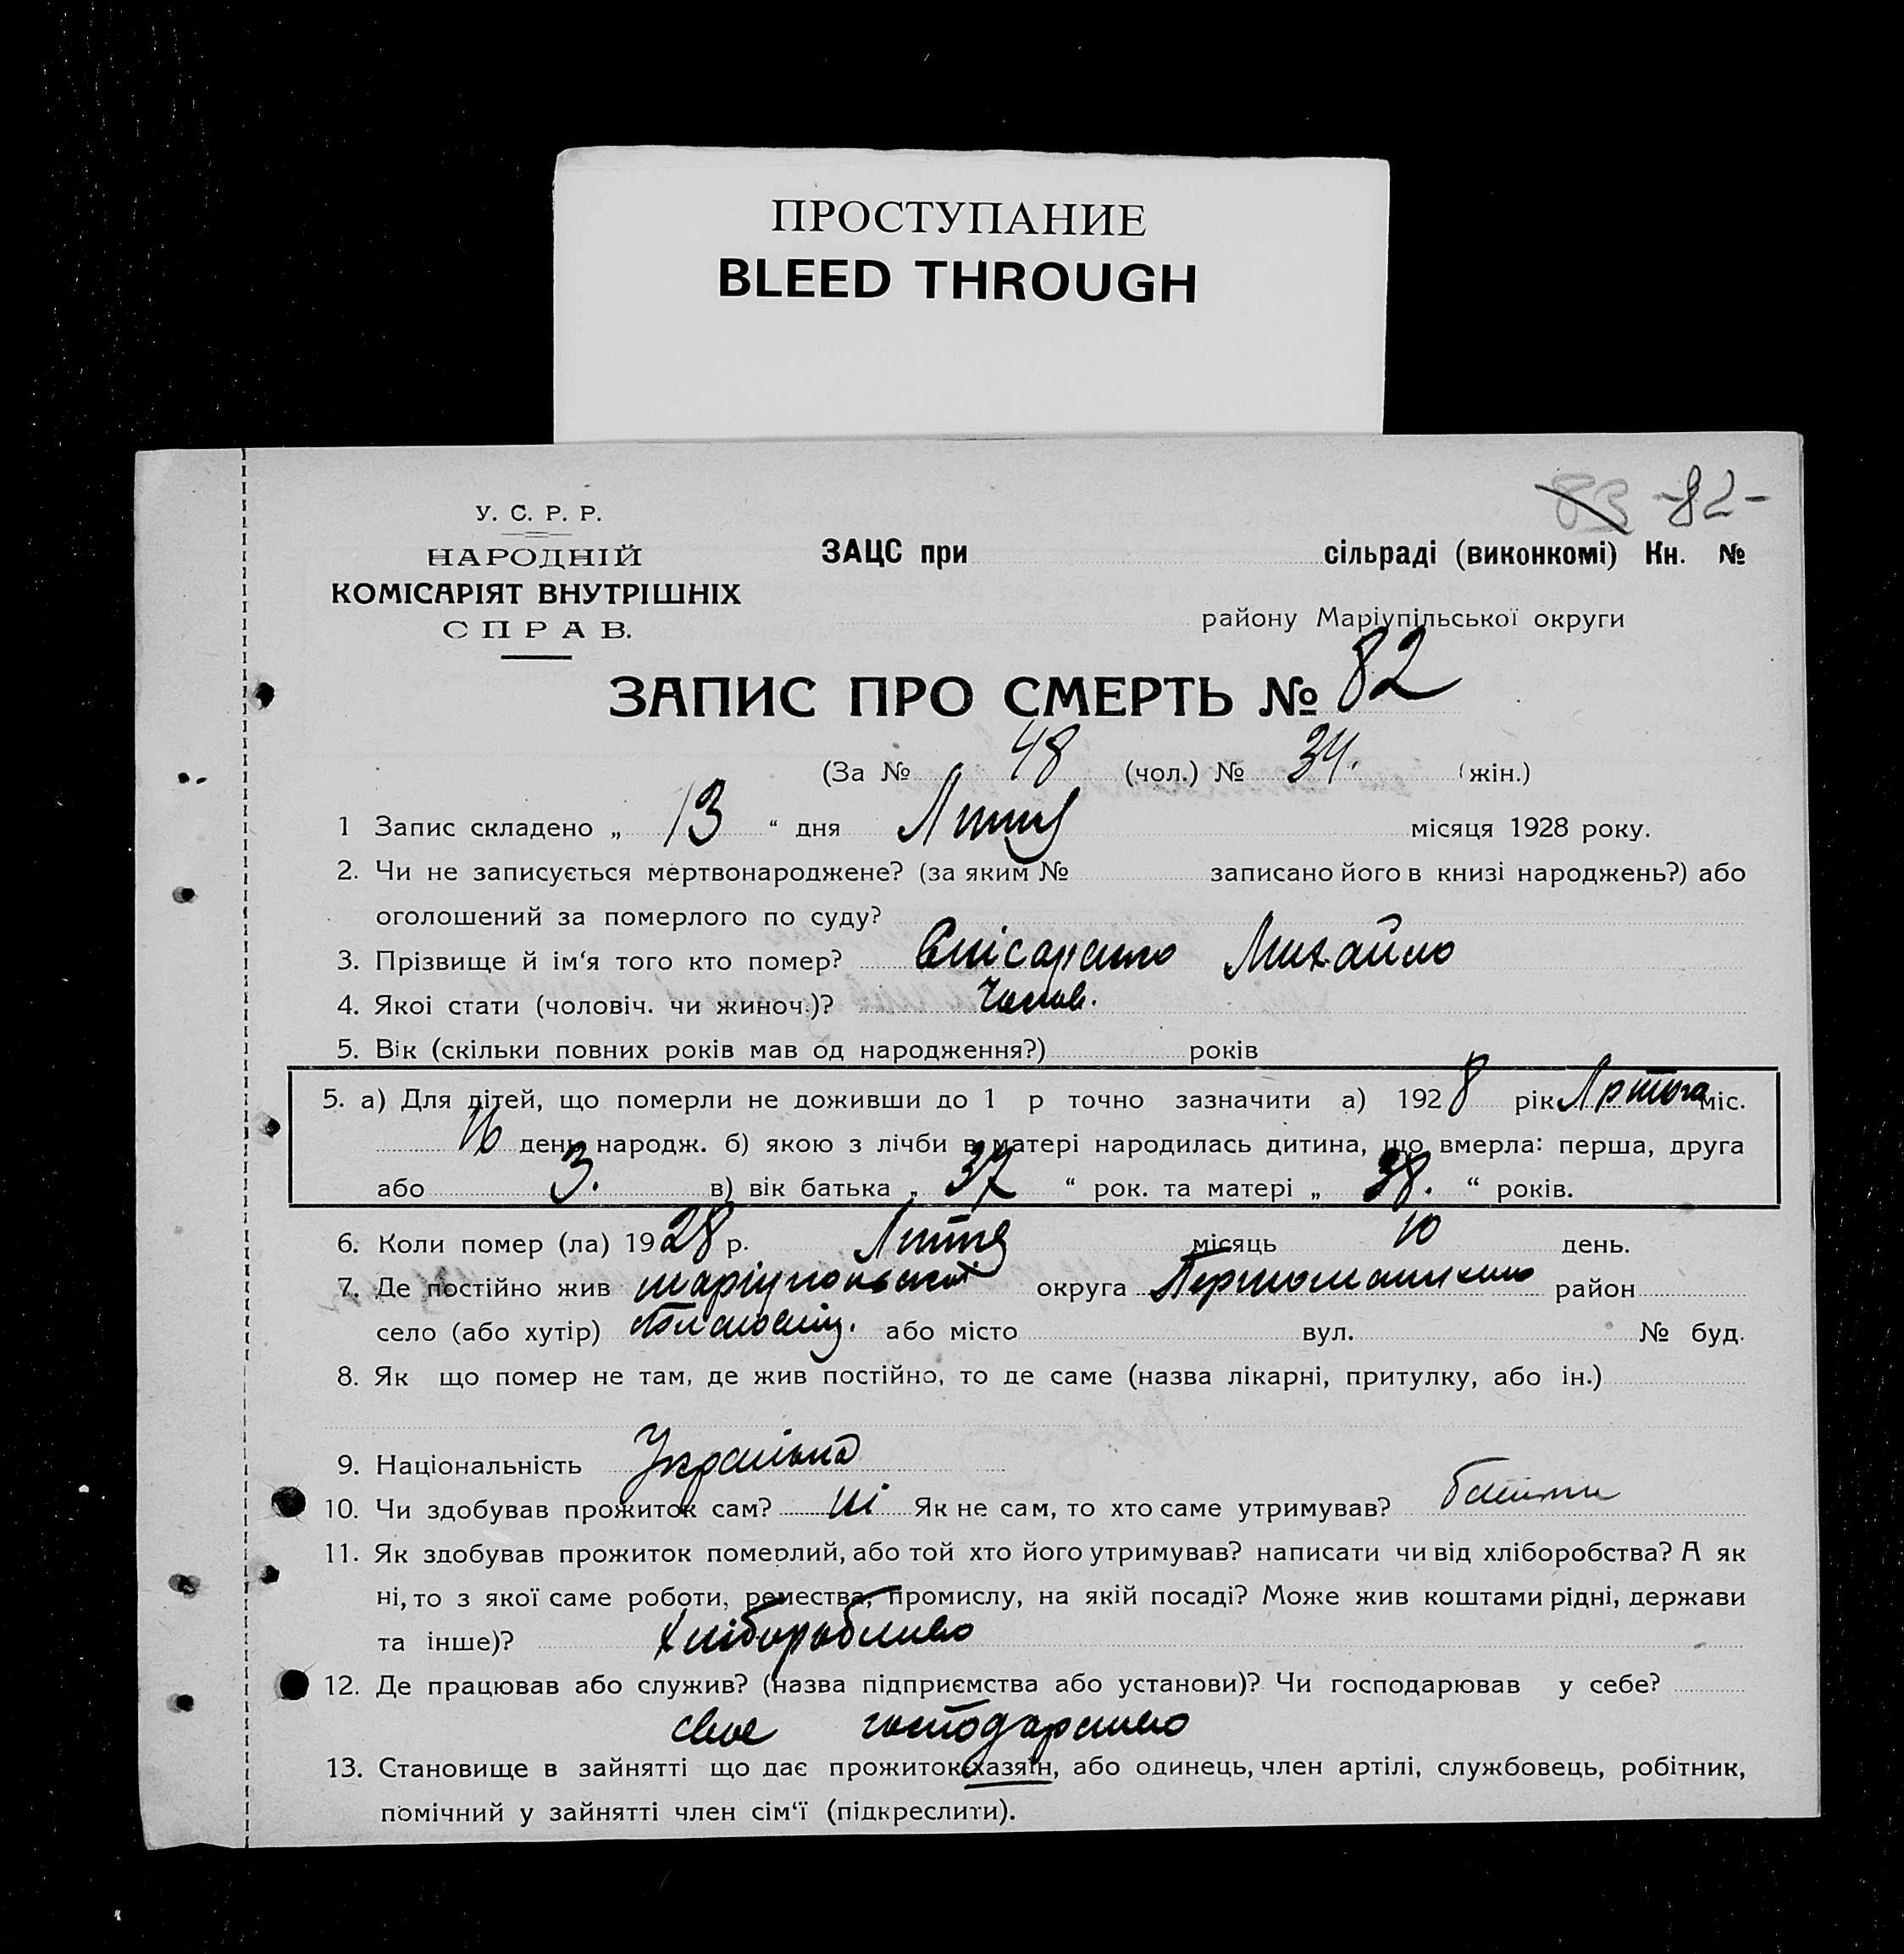 ПРОСТУПАНИЕ
BLEED THROUGH
83 -82-
У. С. Р. Р.
НАРОДНІЙ
КОМІСАРІЯТ ВНУТРІШНІХ
СПРАВ.
ЗАЦС при сільраді (виконкомі) Кн. №
району Маріупільської округи
ЗАПИС ПРО СМЕРТЬ № 82
(За № 48 (чол.) № 34. (жін.)
1 Запис складено „ 13 “ дня Липня місяця 1928 року.
2. Чи не записується мертвонароджене? (за яким № записано його в книзі народжень?) або
оголошений за померлого по суду?
3. Прізвище й ім‘я того кто помер? Михайло
4. Якоі стати (чоловіч. чи жиноч.)? Чолов.
5. Вік (скільки повних років мав од народження?) років
5. а) Для дітей, що померли не доживши до 1 р точно зазначити а) 1928 рік Лютого міс.
16 день народж. б) якою з лічби в матері народилась дитина, що вмерла: перша, друга
або 3. в) вік батька „ 37 “ рок. та матері „ 38. “ років.
6. Коли помер (ла) 1928 р. Липня місяць 10 день.
7. Де постійно жив округа район
село (або хутір) або місто вул. № буд.
8. Як що помер не там, де жив постійно, то де саме (назва лікарні, притулку, або ін.)
9. Національність
10. Чи здобував прожиток сам? ні Як не сам, то хто саме утримував?
11. Як здобував прожиток померлий, або той хто його утримував? написати чи від хліборобства? А як
ні, то з якої саме роботи, ремества, промислу, на якій посаді? Може жив коштами рідні, держави
та інше)?
12. Де працював або служив? (назва підприємства або установи)? Чи господарював у себе?
своє господарство
13. Становище в зайнятті що дає прожиток хазяїн, або одинець, член артілі, службовець, робітник,
помічний у зайнятті член сім‘ї (підкреслити).